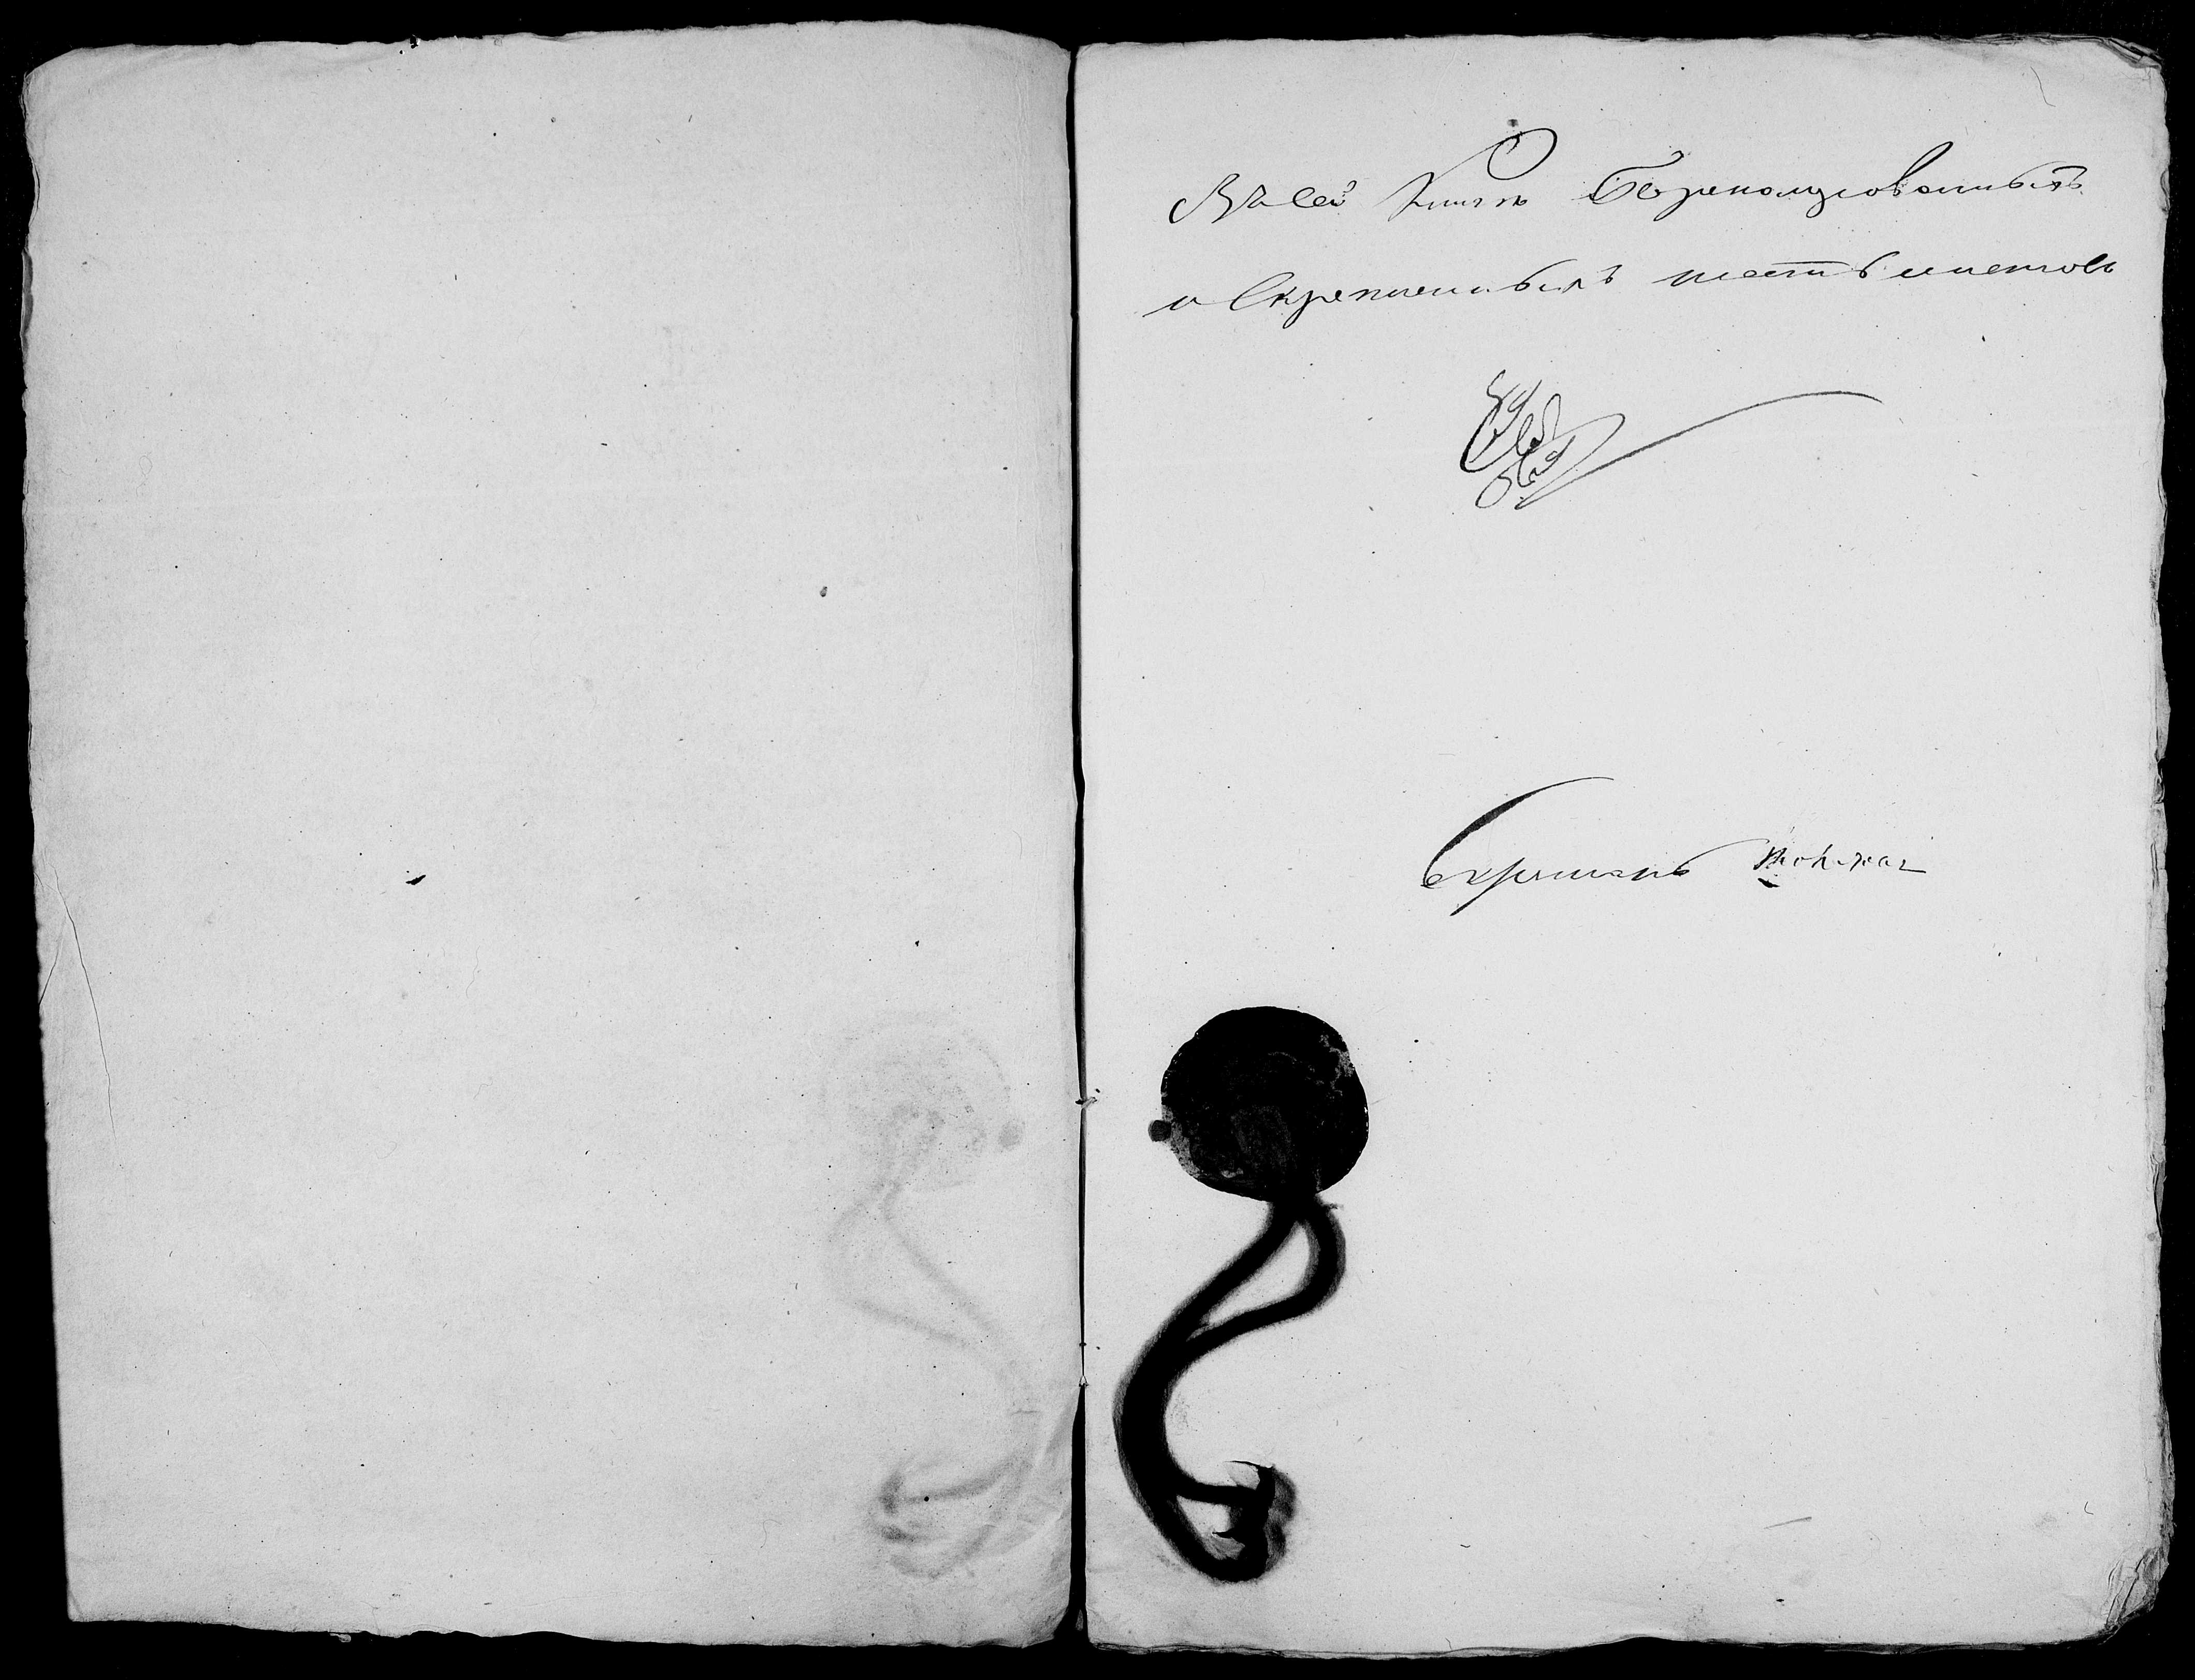 Въ сей Книгѣ Перенумерованныхъ
и Скрепленныхъ шесть листовъ
Секретарь